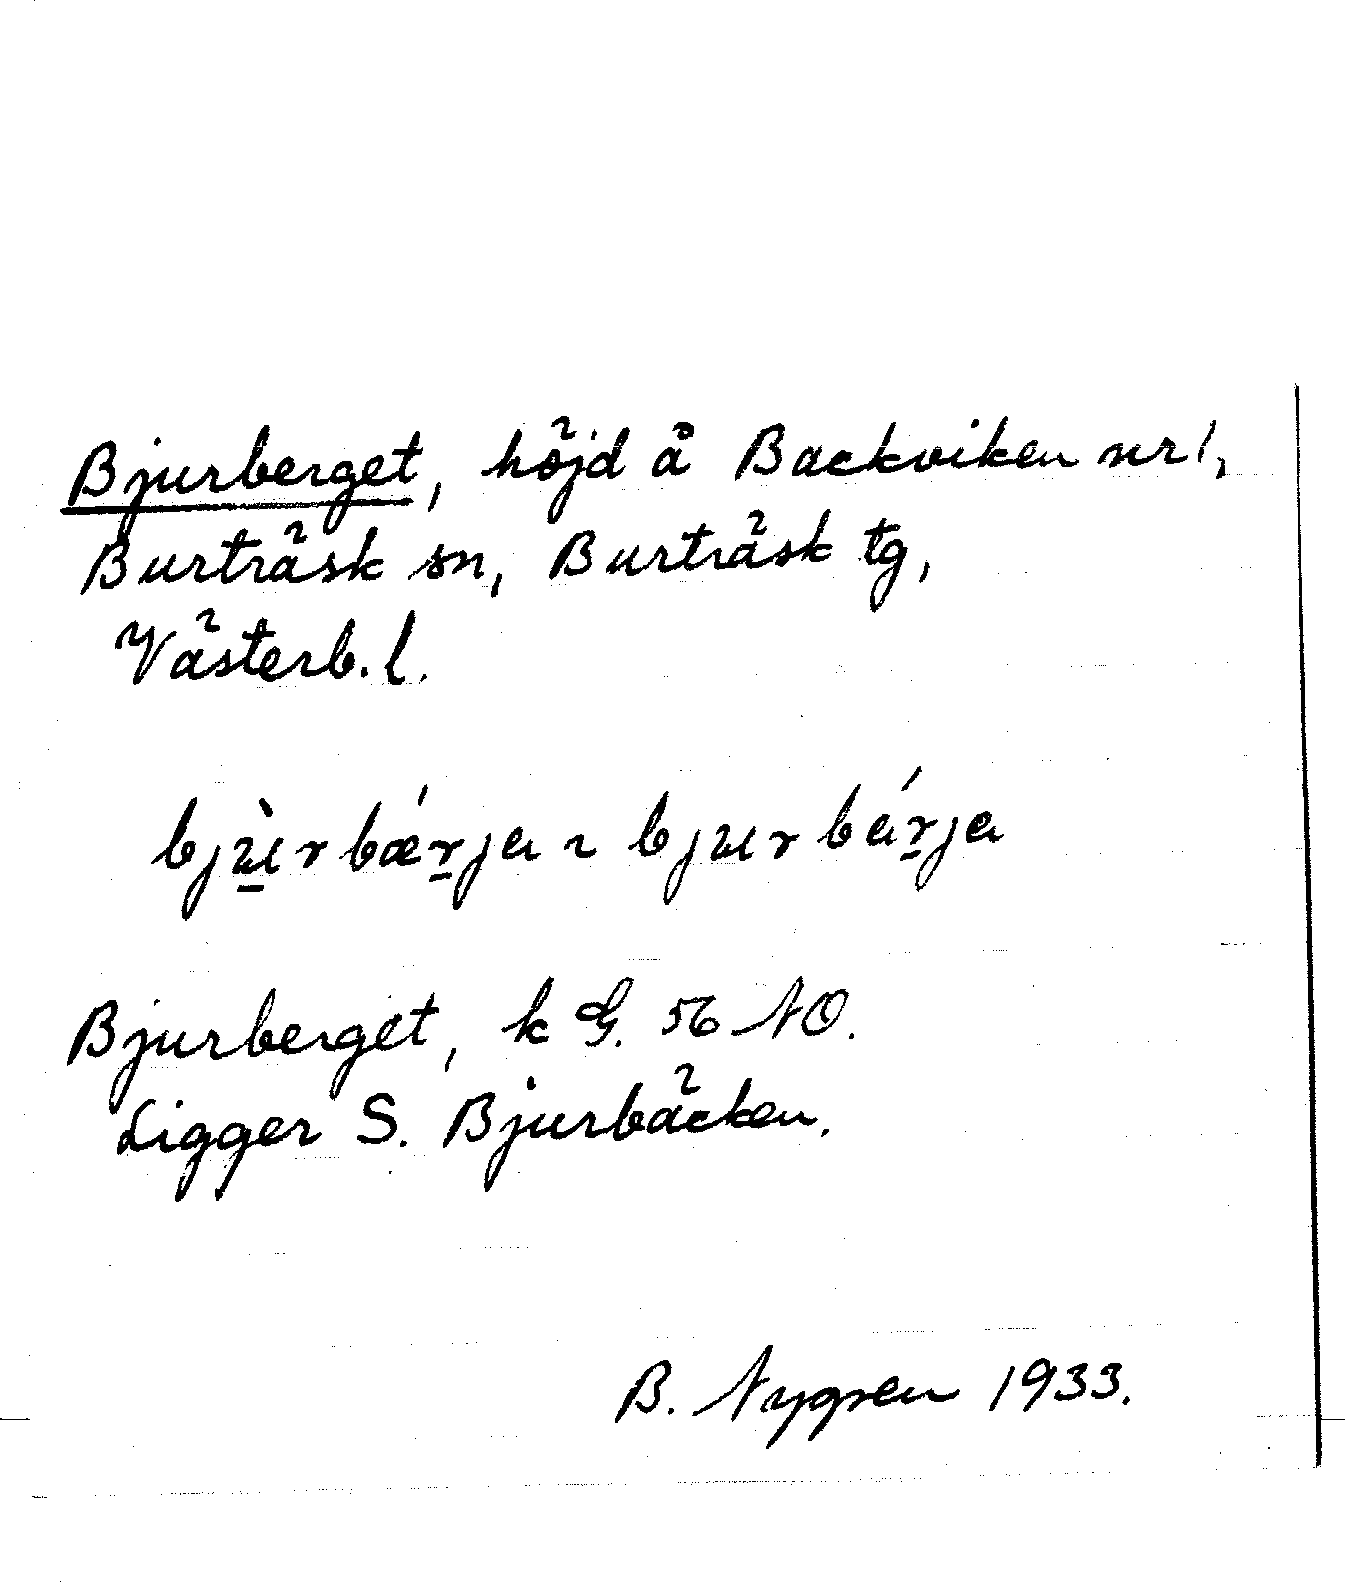 Bjurberget, höjd å Backviken nr 1,
Burträsk sn, Burträsk tg,
Västerb. l.
bjʉ̱̀rbǽṟja ~ bjʉrbáṟja
Bjurberget, k G. 56 NO.
Ligger S. Bjurbäcken.
B. Nygren 1933.